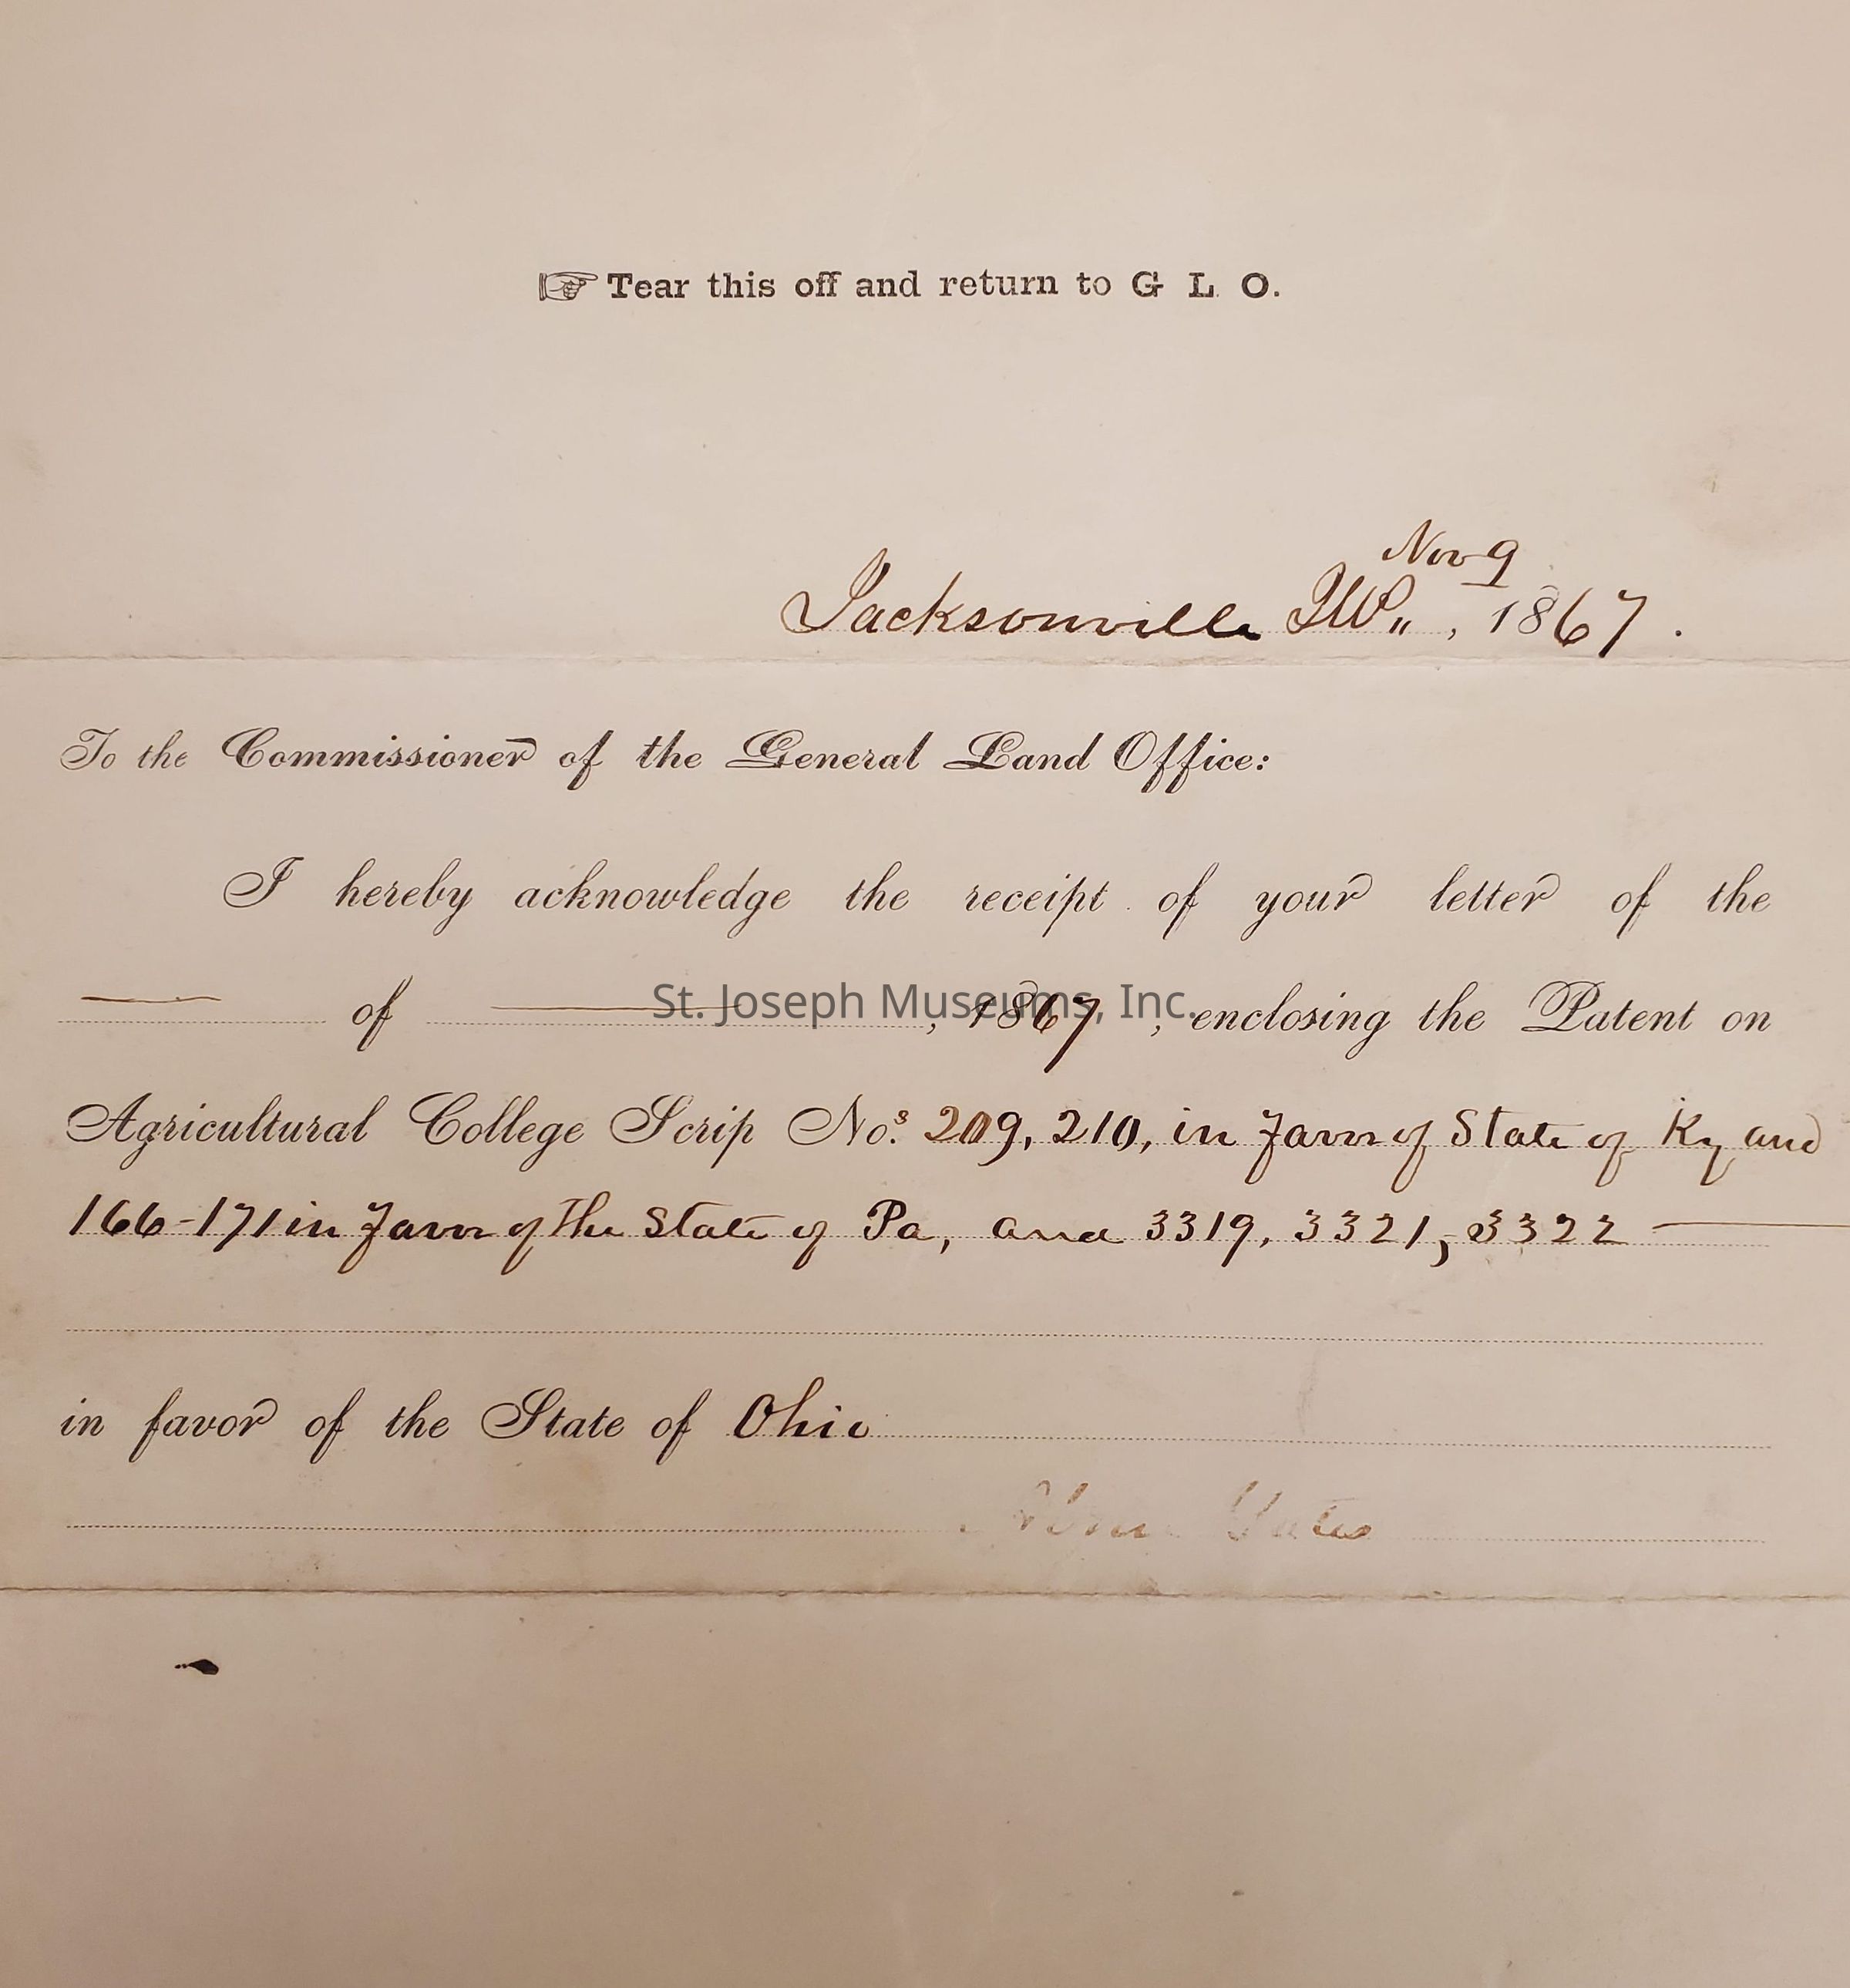 ☞ Tear this off and return to G L O.
Nov 9
Jacksonville Ill,, , 1867 .
To the Commissioner of the General Land Office:
I hereby acknowledge the receipt of your letter of the
—— of ——, 1867, enclosing the Patent on
St. Joseph Museums, Inc.
Agricultural College Scrip No.s 209, 210, in favor of State of Ky and
166-171 in favor of the State of Pa, and 3319, 3321, 3322 ——
in favor of the State of Ohio
Yates